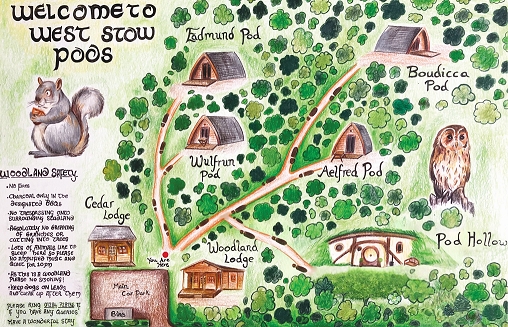 WELCOME TO
WEST STOW
PODS
Eadmund Pod
Boudicca
Pod
Wulfrun
Pod
Aelfred Pod
WOODLAND SAFETY.
• No fires
• Charcoal only in the
designated BBQs
• No trespassing onto
surrounding woodland
• Absolutely no snapping
of branches or
cutting into trees
• Lots of animals like to
sleep here so please
no amplified music and
quiet for 10pm
• As this is a woodland
please no smoking!
• Keep dogs on leads
and clear up after them
Please ring
if you have any queries
Have a wonderful stay
Cedar
Lodge
You Are
Here
Woodland
Lodge
Pod Hollow
Main
Car Park
Bins